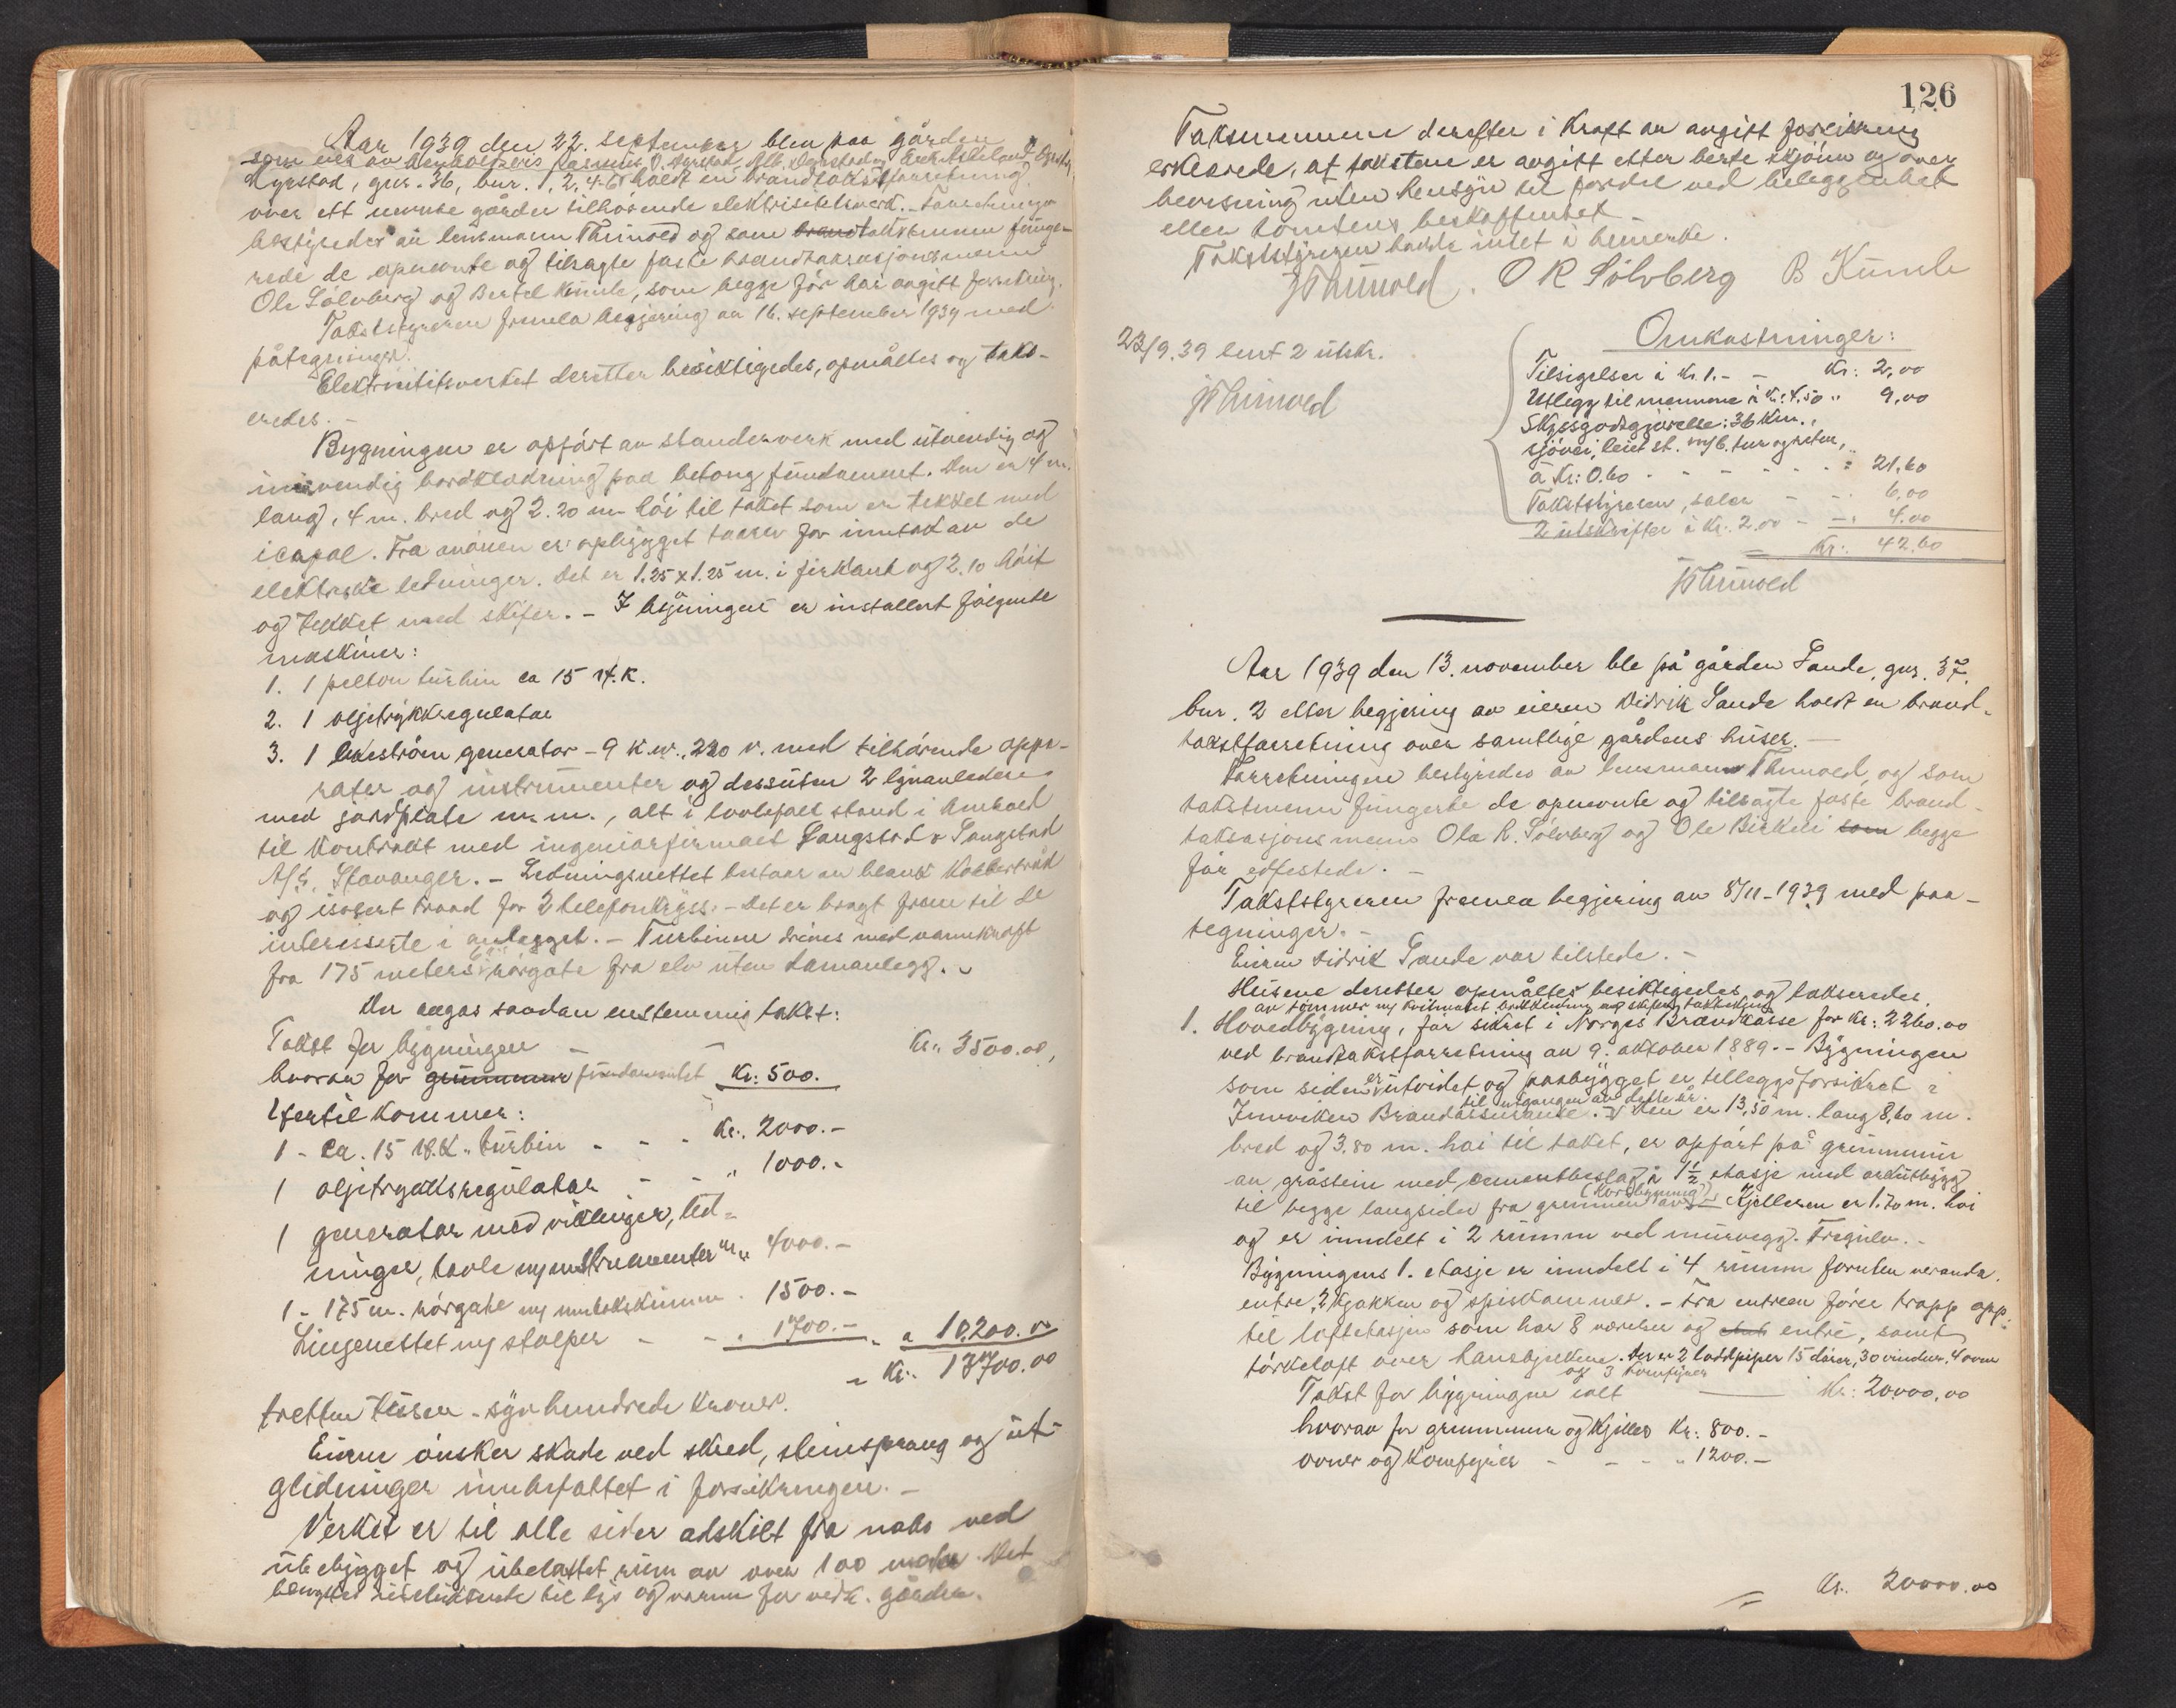 Aar 1939 den 22. september blev paa gården
som eies av
Myrstad, gnr. 36, bnr. 1, 2, 4-6 holdt en brandtakstforretning
over ett nevnte gårder tilhørende elektrisitetsverk. Forretningen
bestyredes av lensmann Thunold og som brandtakstmenn funge-
rede de opnevnte og tilsagte faste brandtaxasjonsmenn
Ole Sølvberg og Bertel Kumle, som begge før har avgitt forsikring.
Takststyreren fremla begjæring av 16. september 1939 med
påtegninger.
Elektrisititsverket deretter besiktigedes, opmåltes og taks-
eredes. -
Bygningen er opført av standerverk med utvendig og
innvendig bordklædning paa betong fundament. Den er 4 m.
lang, 4 m. bred og 2.20 m høi til taket som er tekket med
icapal. Fra er opbygget taarn for inntak av de
elektriske ledninger. Det er 1.25 x 1.25 m. i firkant og 2.10 høit
og tekket med skifer. - I bygningen er installert følgende
maskiner:
1. 1 pelton turbin ca 15 H.K.
2. 1 oljetrykkregulator
3. 1 likestrøm generator - 9 k.w., 220 v. med tilhørende appa-
rater og instrumenter og dessuten 2 lynavledere
med jordplate m.m., alt i lovbefalt stand i henhold
til kontrakt med ingeniørfirmaet Langstad & Langstad
A/S, Stavanger. - Ledningsnettet bestaar av blank kobbertråd
og isolert traad for 2 telefonkryss. - Det er bragt frem til de
interisserte i anlegget. - Turbinen drives med vannkraft
fra 175 meters rørgate fra elv uten damanlegg. -
Der avgas saadan enstemmig takst:
Takst for bygningen - - Kr. 3500.00,
hvorav for grunnmur fundamentet Kr: 500.
Hertil kommer:
1 - ca. 15 H.K. turbin - - - Kr. 2000.-
1 oljetrykksregulator - - " 1000.-
1 generator med viklinger, led-
ninger, tavle m/ instrumenter " " 4000.-
1 - 175 m. rørgate m/ inntakskumme . 1500.-
Linjenettet m/ stolper - - . 1700.- " a 10,200.00
= Kr. 13700.00
tretten tusen - syv hundrede kroner.
Eieren ønsker skade ved skred, steinsprang og ut-
glidninger innbefattet i forsikringen. -
Verket er til alle sider adskilt fra nabo ved
ubebygget og ubelastet rum av over 100 meter. Det
benyttes utelukkende til lys og varme for vedk. gårder.
126
Taksmennene derefter i kraft av avgitt forsikring
erklærede, at taksten er avgitt etter beste skjønn og over
bevisning uten hensyn til fordel ved beliggenhet
eller tomtens beskaffenhet -
Takststyreren hadde intet å bemerke.
JThunold. O R Sølvberg B Kumle
23/9.39 sent 2 utskr.
JThunold
Omkostninger:
Tilsigelser à kr. 1.- - Kr: 2,00
Utlegg til mennene à Kr: 4.50 " 9,00
Skyssgodtgjørelse: 36 km.,
sjøvei, leiet st. m/b. tur og retur,
à Kr: 0.60 - - - - - : 21,60
Takststyreren, salær - - . 6,00
2 utskrifter à Kr. 2.00 - - : 4.00
= Kr: 42.60
JThunold
Aar 1939 den 13. november ble på gården Sande, gnr. 37.
bnr. 2 etter begjering av eieren Didrik Sande holdt en brand-
takstforretning over samtlige gårdens huser. -
Forretningen bestyredes av lensmann Thunold, og som
takstmenn fungerte de opnevnte og tilsagte faste brand-
taksasjonsmenn Ola R. Sølvberg og Ole Birkeli som begge
før edfestede. -
Takststyreren fremla begjering av 8/11-1939 med paa-
tegninger. -
Eieren Didrik Sande var tilstede. -
Husene deretter opmåltes besiktigedes og takseredes.
av tømmer m/ hvitmalet bordklædning og skifer takteking
1. Hovedbygning, før sikret i Norges Brandkasse for kr: 2260.00
ved brandtakstforretning av 9. oktober 1889. - Bygningen
som siden er utvidet og paabygget er tilleggsforsikret i
til utgangen av dette år.
Innviken Brandassuranse. Den er 13,50 m. lang 8,60 m.
bred og 3.80 m. høi til taket, er opført på grunnmur
av gråstein med cementbeslag i 1½ etasje med arkutbygg
(Korsbygning)
til begge langsider fra grunnen av. Kjelleren er 1.70 m. høi
og er inndelt i 2 rumm ved murvegg. Tregulv. -
Bygningens 1. etasje er inndelt i 4 rumm foruten veranda,
entre, 2 kjøkken og spiskammer. - Fra entreen fører trapp opp
til loftetasjen som har 8 værelser og entre, samt
tørkeloft over hanebjelkene. Der er 2 loddpiper 15 dører, 30 vinduer, 4 ovner
og 3 komfyrer
Takst for bygningen ialt - Kr: 20000,00
hvorav for grunnmur og kjeller Kr: 800.-
ovner og komfyrer - - - " 1200.-
= Kr. 20000.00